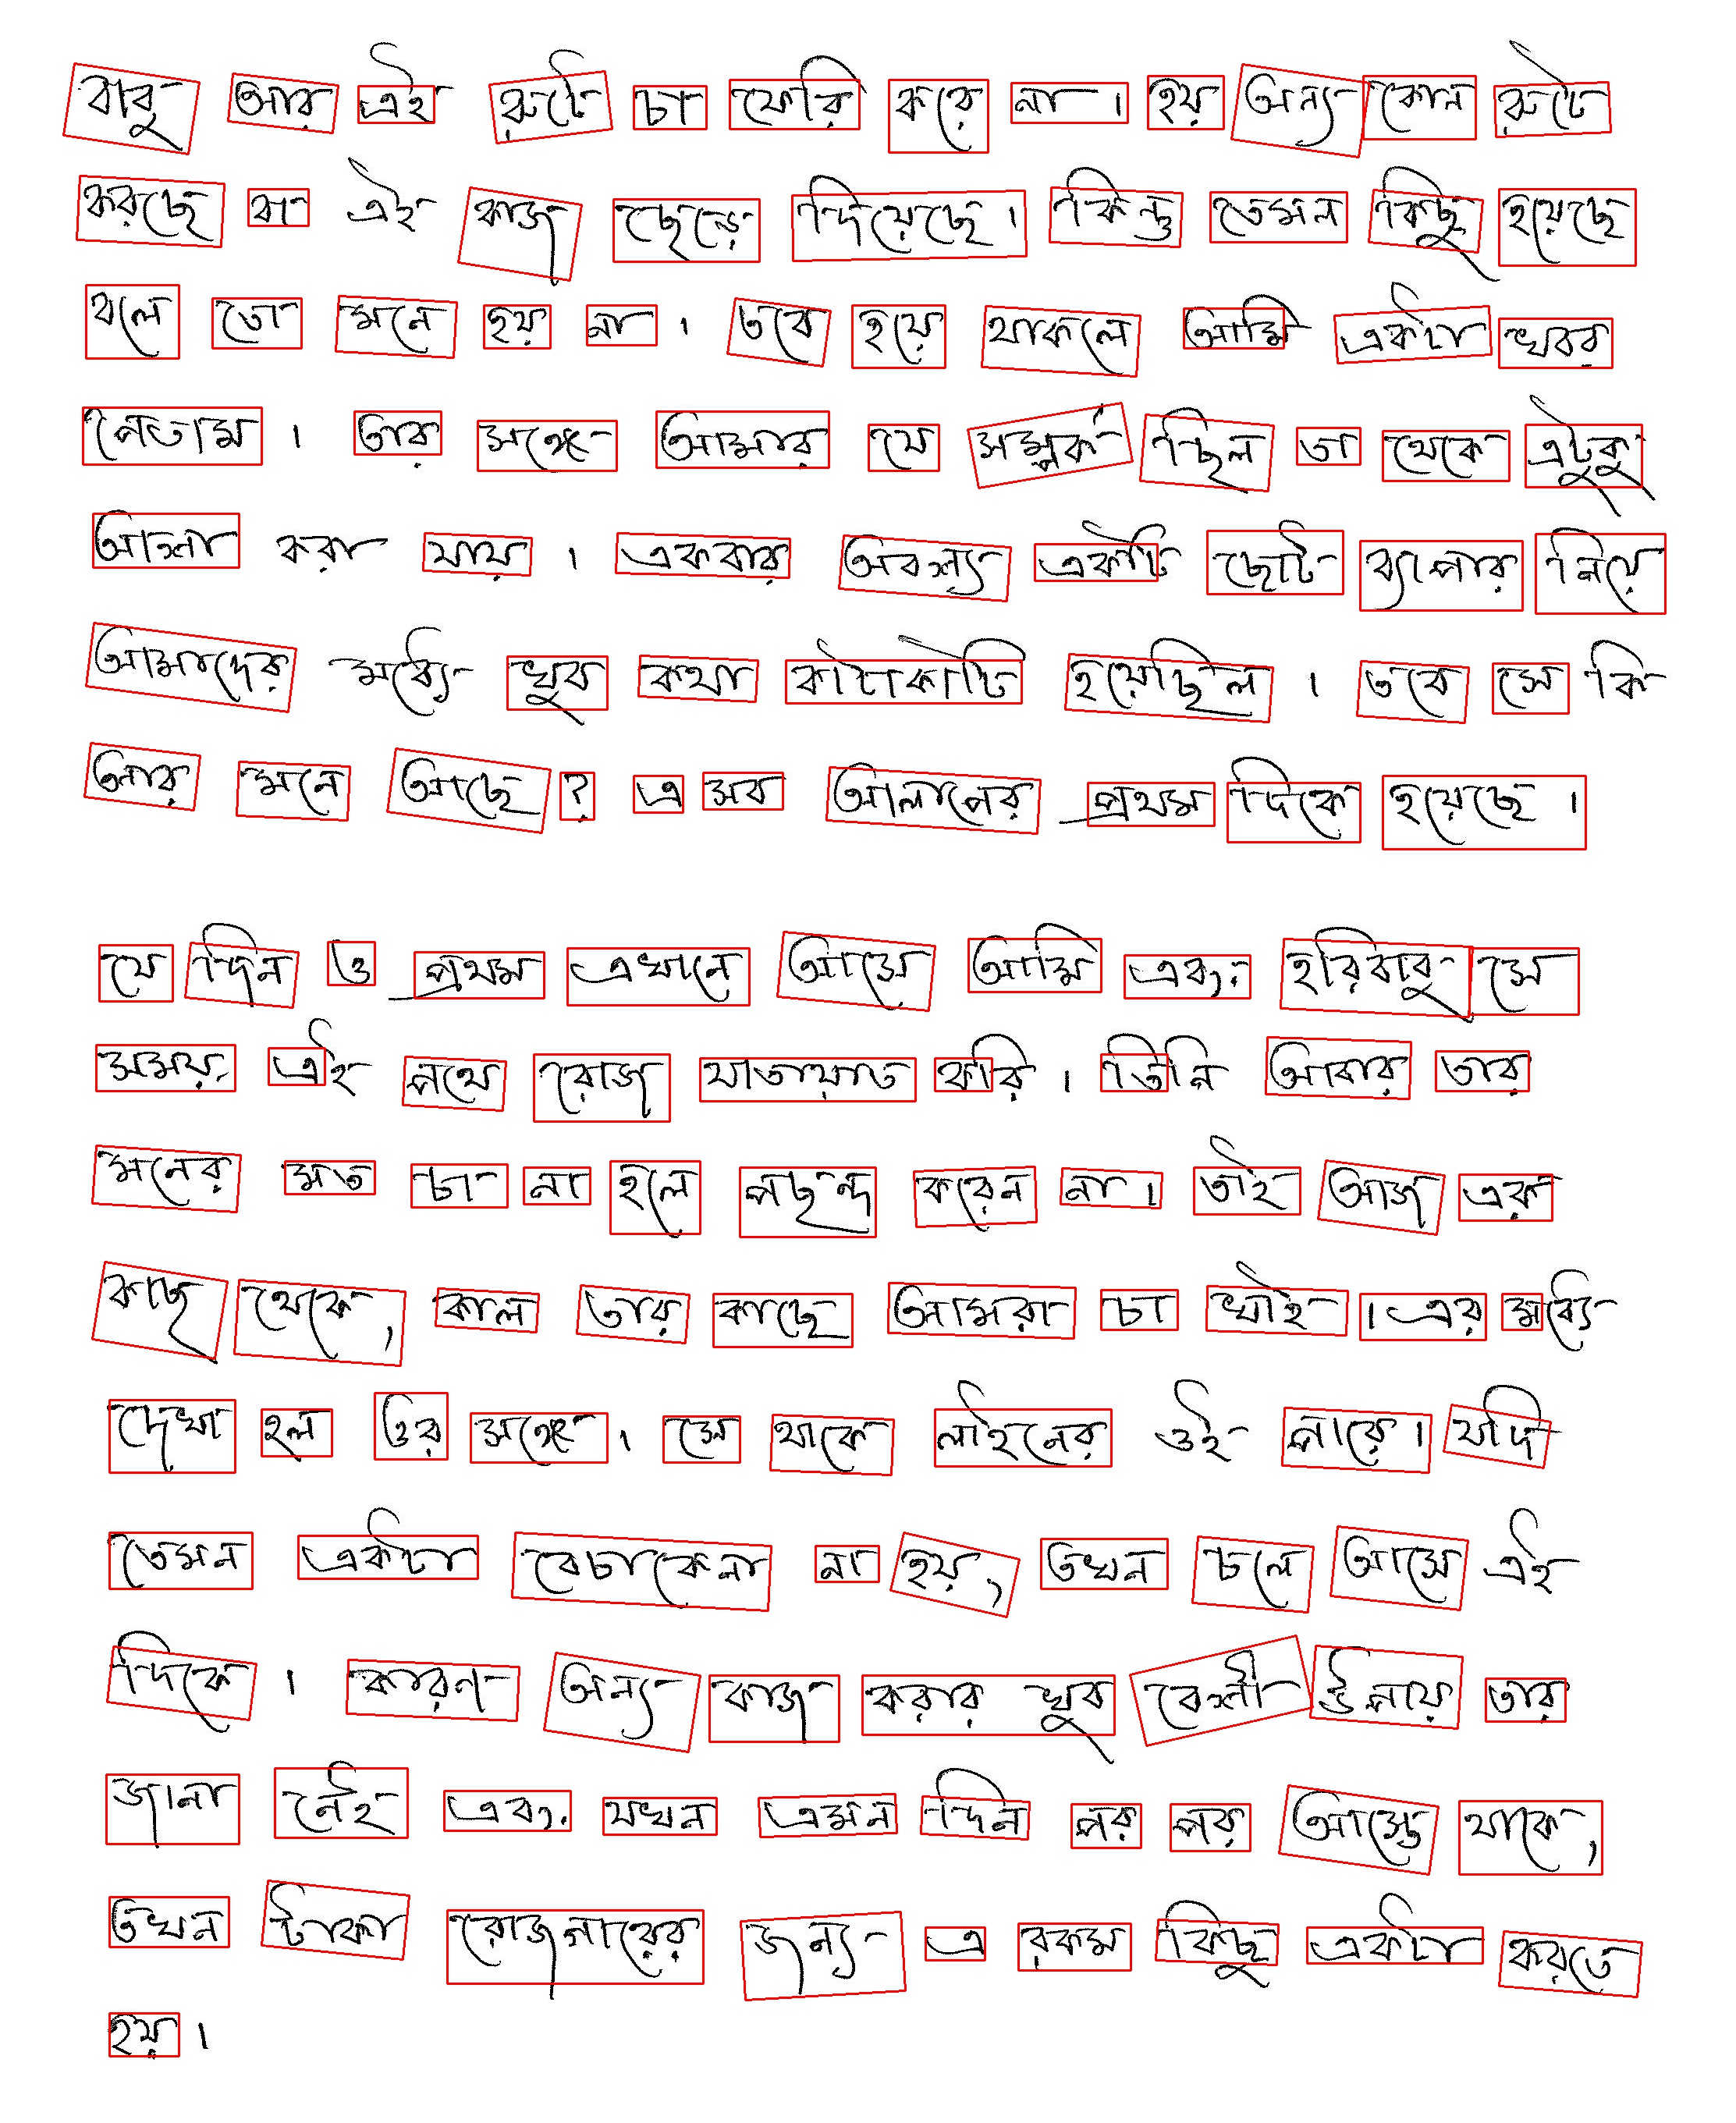 বাবু আর এই রুটে চা ফেরি করে না। হয় অন্য কোন রুটে
করছে বা এই কাজ ছেড়ে দিয়েছে। কিন্তু তেমন কিছু হয়েছে
বলে তো মনে হয় না। তবে হয়ে থাকলে আমি একটা খবর
পেতাম। তার সঙ্গে আমার যে সম্পর্ক ছিল তা থেকে এটুকু
আশা করা যায়। একবার অবশ্য একটি ছোট ব্যাপার নিয়ে
আমাদের মধ্যে খুব কথা কাটাকাটি হয়েছিল। তবে সে কি
আর মনে আছে? এ সব আলাপের প্রথম দিকে হয়েছে।
যে দিন ও প্রথম এখানে আসে আমি এবং হরিবাবু সে
সময় এই পথে রোজ যাতায়াত করি। তিনি আবার তার
মনের মত চা না হলে পছন্দ করেন না। তাই আজ এক
কাছ থেকে, কাল তার কাছে আমরা চা খাই। এর মধ্যে
দেখা হল ওর সঙ্গে। সে থাকে লাইনের ওই পারে। যদি
তেমন একটা বেচাকেনা না হয়, তখন চলে আসে এই
দিকে। কারণ অন্য কাজ করার খুব বেশী উপায় তার
জানা নেই এবং যখন এমন দিন পর পর আসতে থাকে,
তখন টাকা রোজগারের জন্য এ রকম কিছু একটা করতে
হয়।